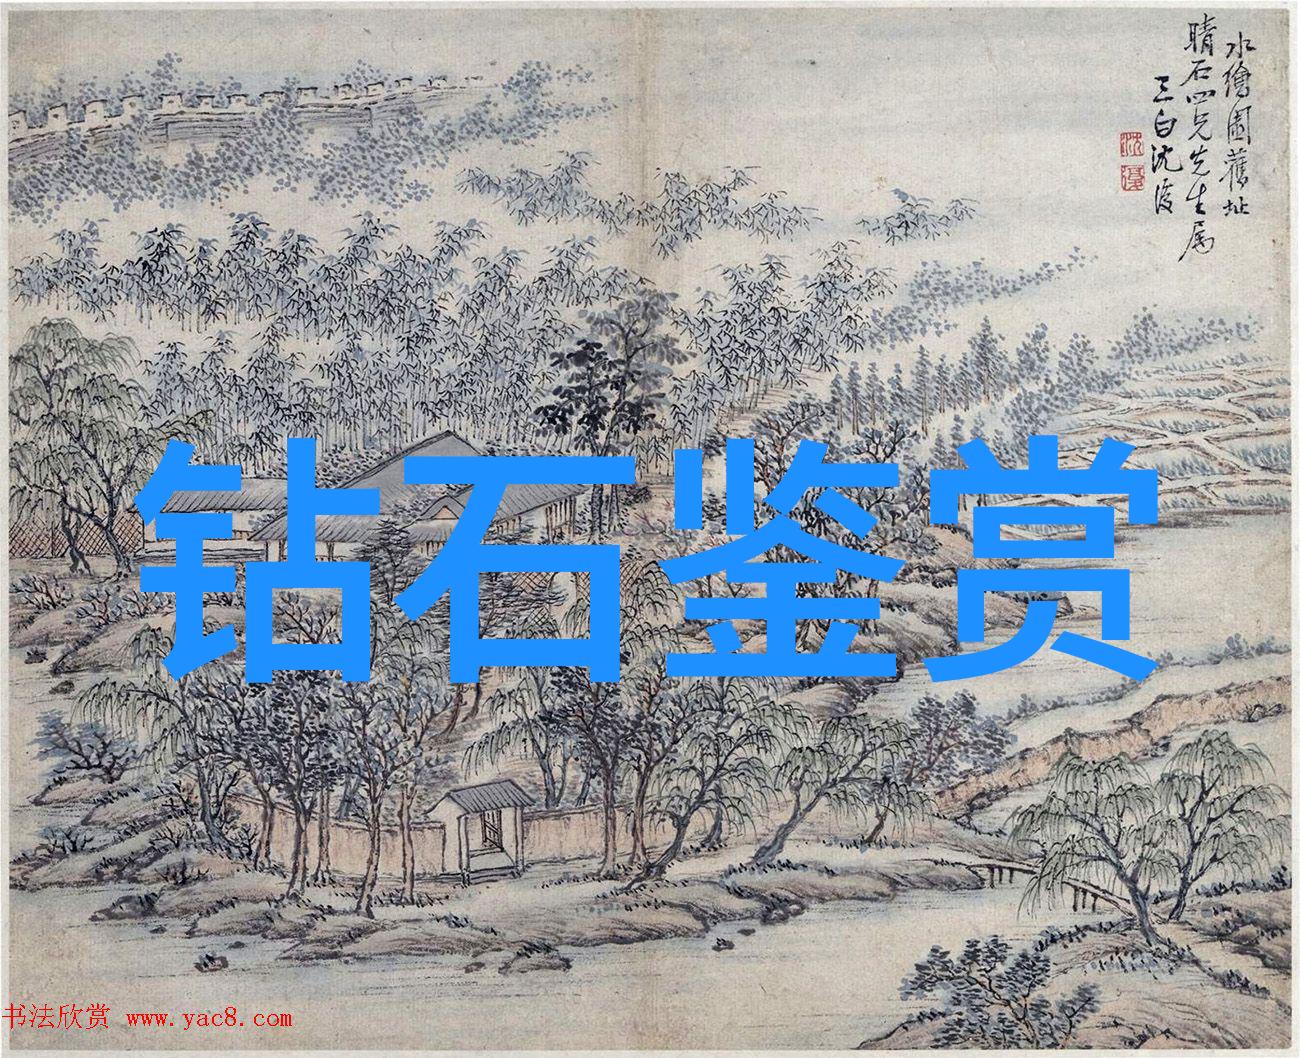 水繪園舊址
晴石四兄先生属
三白沈復
钻石鉴赏
书法欣赏 www.yac8.com